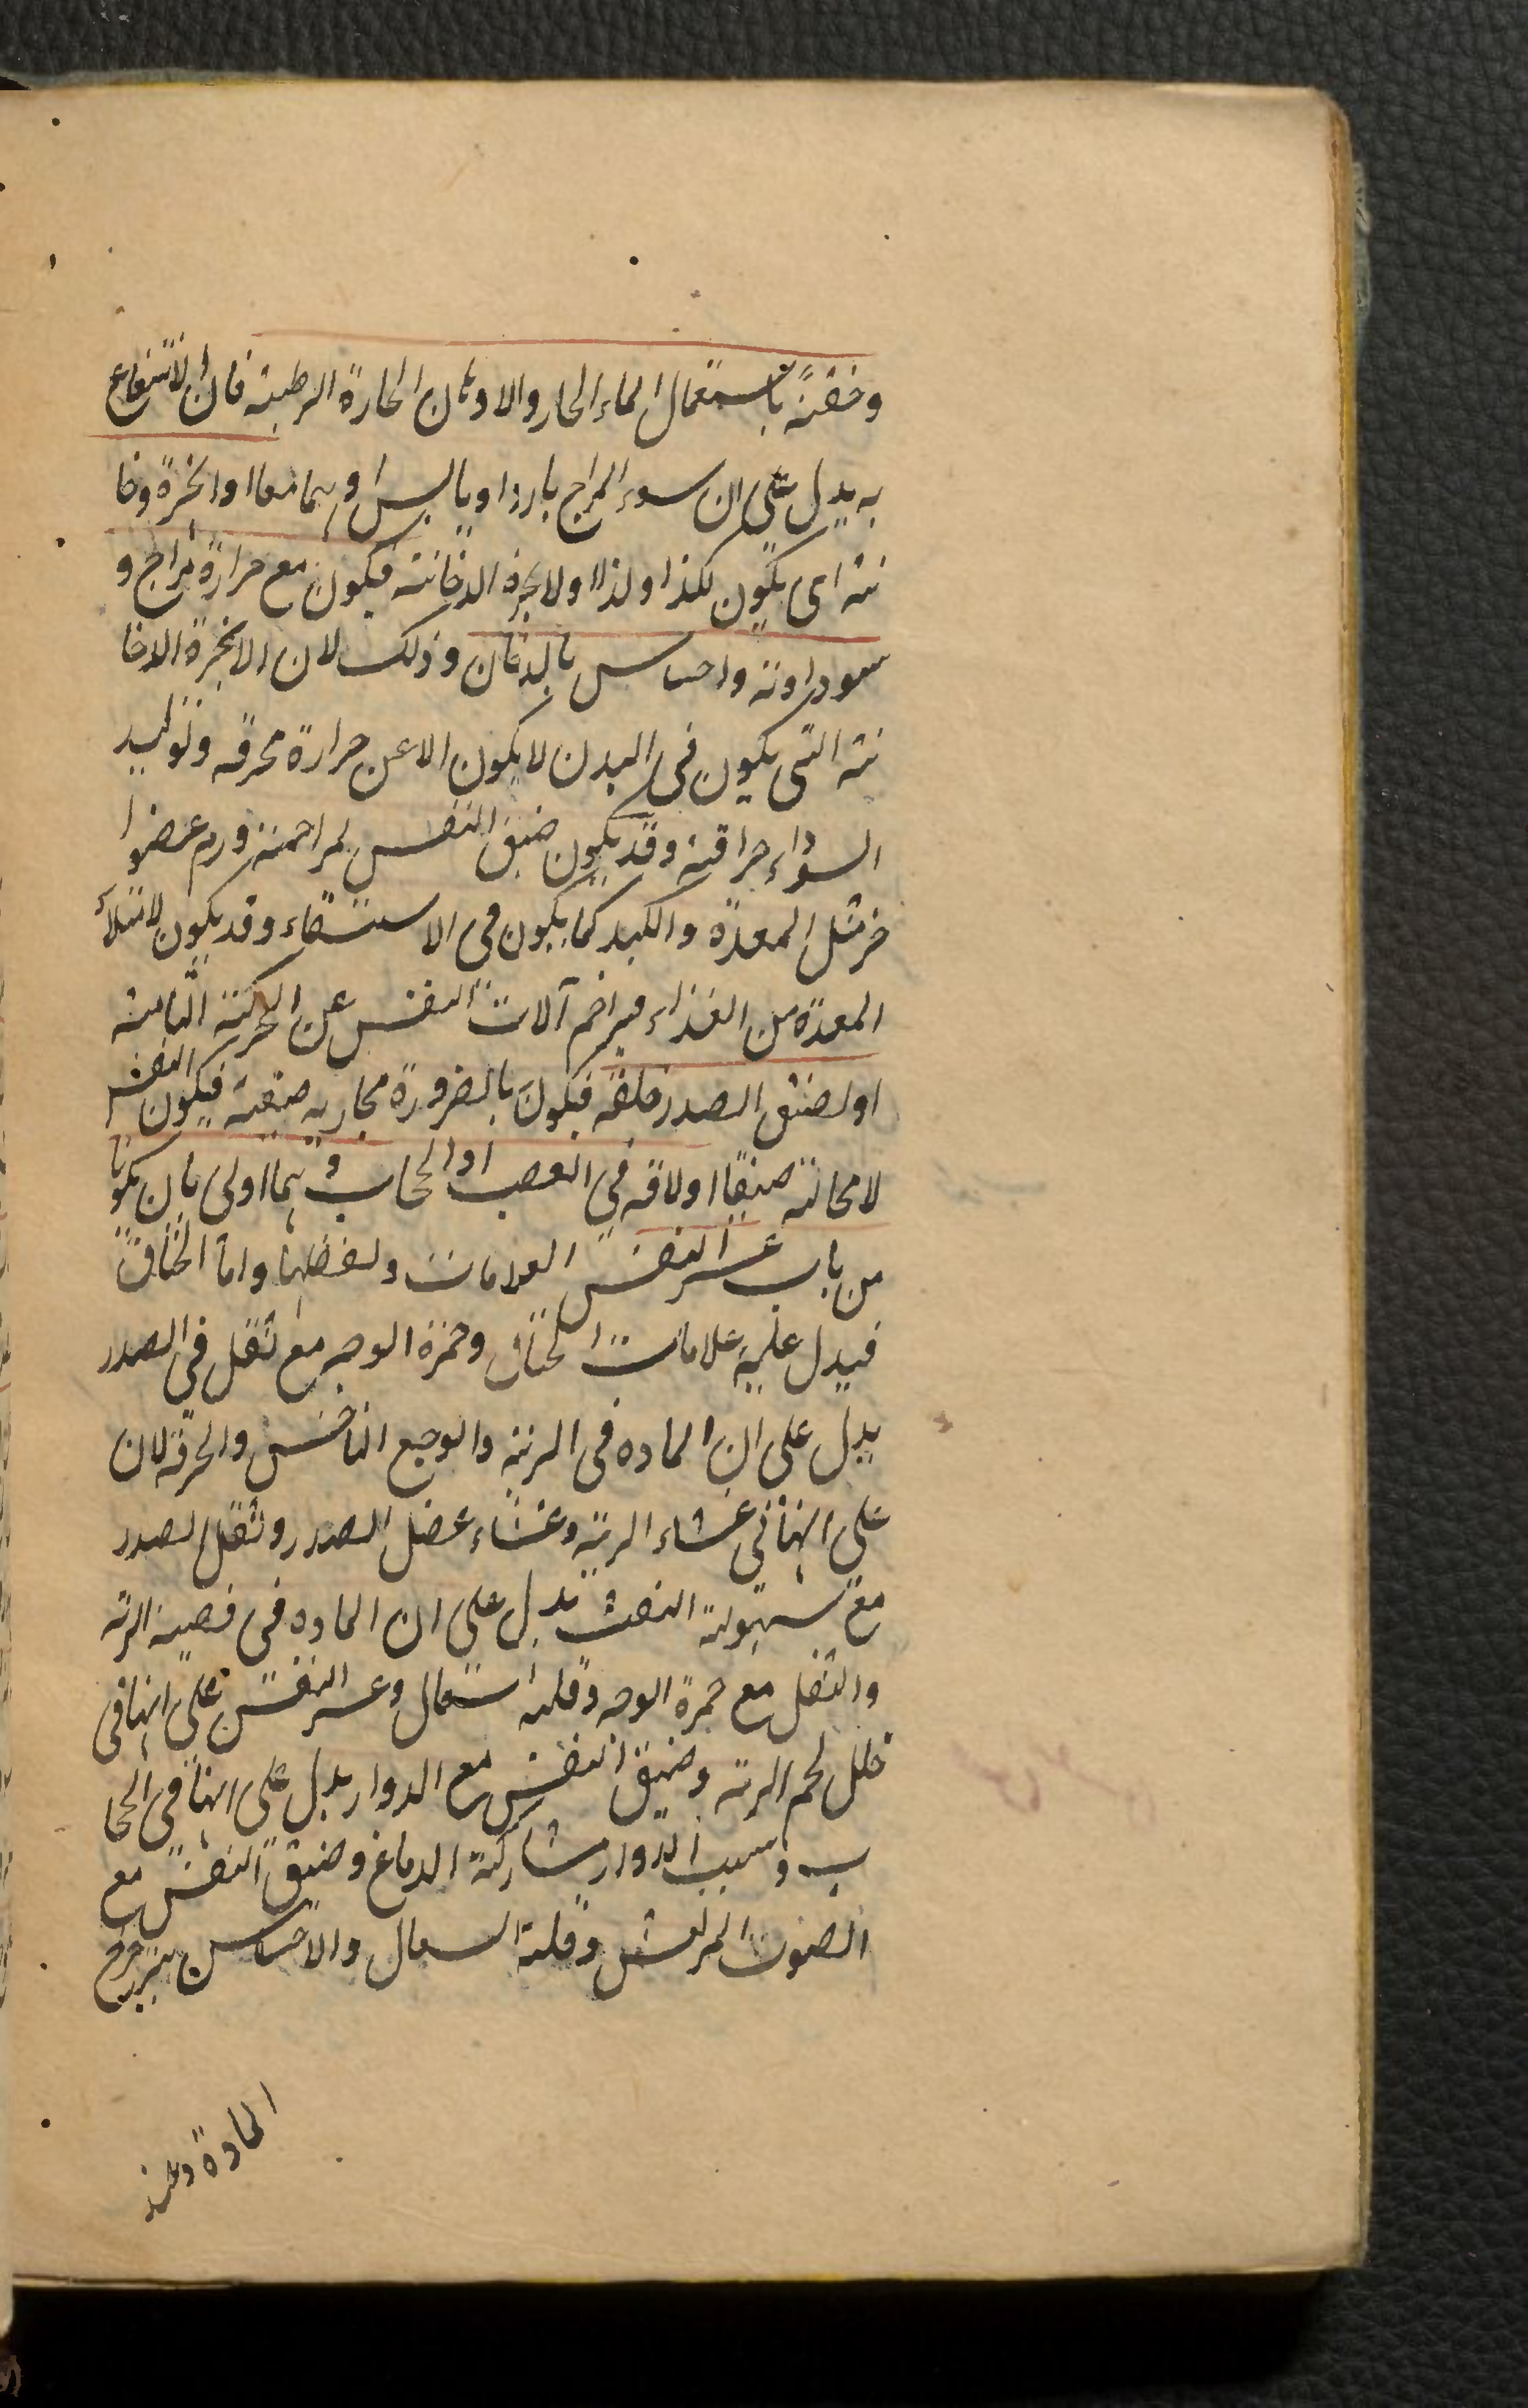 وخفته باستعمال الماء الحار والادهان الحارة الرطبة فان الانتفاع
به يدل على ان سوء المزاج بارد او يابس او بهما معا او ابخرة دخا
نية اى يكون لكذا ولذا او لابخرة الدخانية فيكون مع حرارة مزاج و
سوداوية واحساس بالدخان وذلك لان الابخرة الدخا
نية التى يكون فى البدن لا يكون الا عن حرارة محرقه وتوليد
السوداء حراقية وقد يكون ضيق النفس لمزاحمة ورم عضو ا
خر مثل المعدة والكبد كما يكون فى الاستسقاء وقد يكون لامتلاء
المعدة من الغذاء فيزاحم آلات النفس عن الحركة التامة
او لضيق الصدر خلقة فيكون بالضرورة مجاريه ضيقة فيكون النفس
لا محالة ضيقا او لآفة فى العصب او الحجاب وهما اولى بان يكونا
من باب عسر النفس العلامات ولفظهما واما الخناق
فيدل عليه علامات الخناق وحمرة الوجه مع ثقل فى الصدر
يدل على ان المادة فى الرئة والوجع الناخس والحرقة لان
على انها فى غشاء الرية وغشاء عضل الصدر وثقل الصدر
مع سهولة النفث يدل على ان المادة فى قصبة الرية
والثقل مع حمرة الوجه وقلة اسعال وعسر النفس على انها فى
خلل لحم الرية وضيق النفس مع الدوار يدل على انها فى الحجا
ب وسبب الدوار مشاركة الدماغ وضيق النفس مع
الصوت المرتعش وقلة السعال والاحساس بتزحزح
المادة وعند